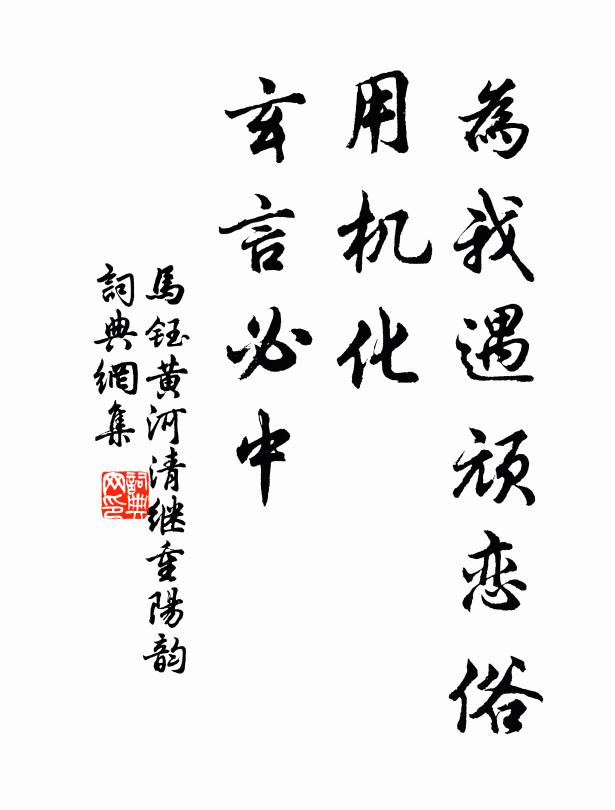 為我遇顽恋俗
用机化
玄言必中
馬鈺黄河清继重陽韵
詞典網集
詞典
网印